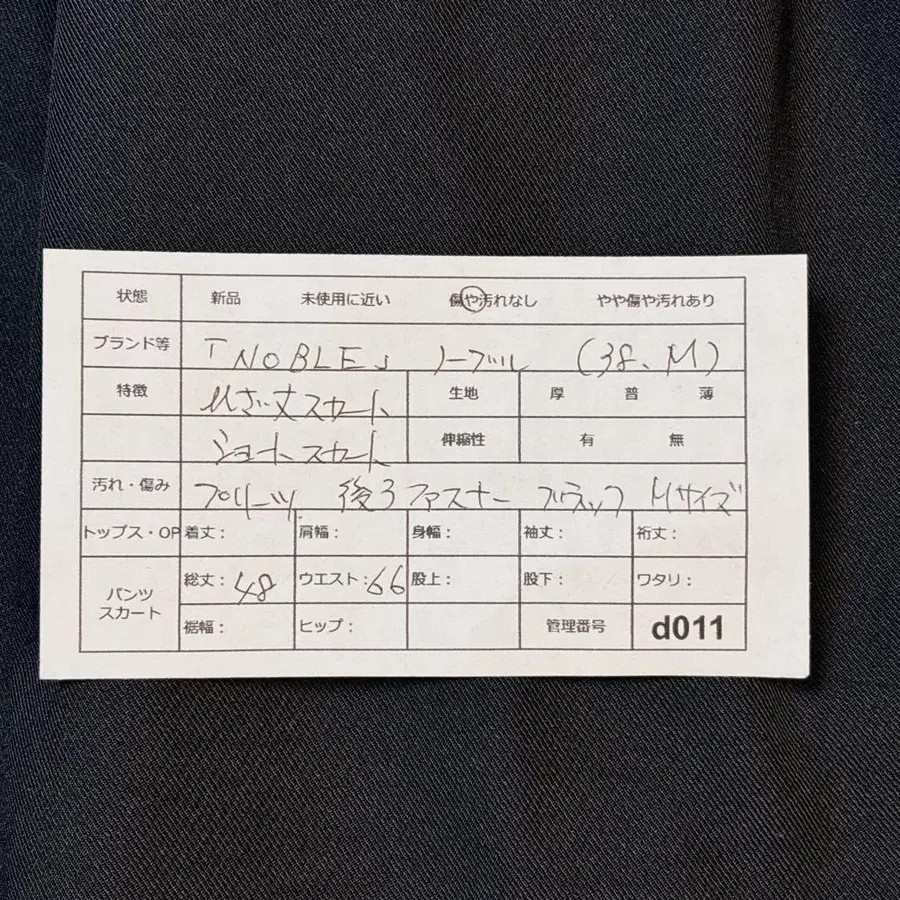 状態 新品 未使用に近い 傷や汚れなし やや傷や汚れあり
ブランド等 「NOBLE」 ノーブル (38、M)
特徴 ひざ丈スカート 生地 厚 普 薄
ショートスカート 伸縮性 有 無
汚れ・傷み プリーツ、後ろファスナー ブラック Mサイズ
トップス・OP 着丈: 肩幅: 身幅: 袖丈: 裄丈:
パンツ スカート 総丈:48 ウエスト:66 股上: 股下: ワタリ:
裾幅: ヒップ: 管理番号 d011